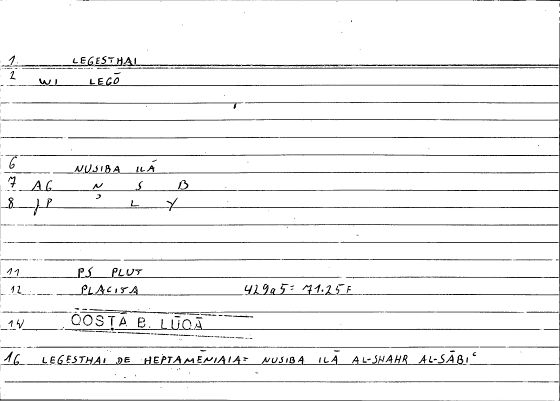 1 LEGESTHAI
2 WI LEGŌ
6 NUSIBA ILĀ
7 AG N S B
8 JP ' L Y
11 PS PLUT
12 PLACITA 429a5 = 71.25F
14 QOSṬĀ B. LŪQĀ
16 LEGESTHAI DE HEPTAMĒNIAIA = NUSIBA ILĀ AL-SHAHR AL-SĀBIʿ